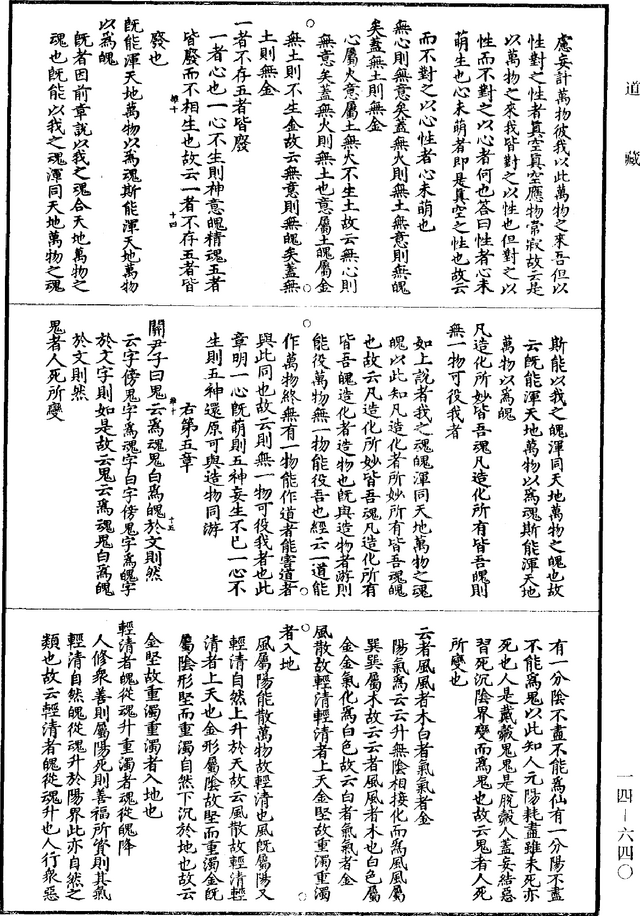 道藏
慮妄計萬物彼我以此萬物之來吾但以
性對之性者真空真空應物常寂故云是
以萬物之來我皆對之以性也但對之以
性而不對之以心者何也答曰性者心未
萌生也心未萌者即是真空之性也故云
而不對之以心性者心未萌也
無心則無意矣蓋無火則無土無意則無魄
矣蓋無土則無金
心屬火意屬土無火不生土故云無心則
無意矣蓋無火則無土也意屬土魄屬金
無土則不生金故云無意則無魄矣蓋無
土則無金
一者不存五者皆廢
一者心也一心不生則神意魄精魂五者
皆廢而不相生也故云一者不存五者皆
雖十 十四
廢也
既能渾天地萬物以為魂斯能渾天地萬物
以為魄
既者因前章說以我之魂合天地萬物之
魂也既能以我之魂渾同天地萬物之魂
斯能以我之魄渾同天地萬物之魄也故
云既能渾天地萬物以為魂斯能渾天地
萬物以為魄
凡造化所妙皆吾魂凡造化所有皆吾魄則
無一物可役我者
如上說者我之魂魄渾同天地萬物之魂
魄以此知凡造化者所妙所有皆吾魂魄
也故云凡造化所妙皆吾魂凡造化所有
皆吾魄造化者造物也既與造物者游則
能役萬物無一物能役吾也經云一道能
作萬物終無有一物能作道者能害道者
與此同也故云則無一物可役我者也此
章明一心既萌則五神妄生不已一心不
生則五神還原可與造物同游
右第五章
雖十 十五
關尹子曰鬼云為魂鬼白為魄於文則然
云字傍鬼字為魂字白字傍鬼字為魄字
於文字則如是故云鬼云為魂鬼白為魄
於文則然
鬼者人死所變
有一分陰不盡不能為仙有一分陽不盡
不能為鬼以此知人元陽耗盡雖未死亦
死也人是戴殼鬼鬼是脫殼人蓋妄結惡
習死沉陰界變而為鬼也故云鬼者人死
所變也
云者風風者木白者氣氣者金
陽氣為云云升無陰相接化而為風風屬
巽巽屬木故云云者風風者木也白色屬
金金氣化為白色故云白者氣氣者金
風散故輕清輕清者上天金堅故重濁重濁
者入地
風屬陽能散萬物故輕清也風既屬陽又
輕清自然上升於天故云風散故輕清輕
清者上天也金形屬陰故堅而重濁金既
屬陰形堅而重濁自然下沉於地也故云
金堅故重濁重濁者入地也
輕清者魄從魂升重濁者魂從魄降
人修衆善則屬陽死則善福所資則其氣
輕清自然魄從魂升於陽界此亦自然之
類也故云輕清者魄從魂升也人行衆惡
一四—六四〇